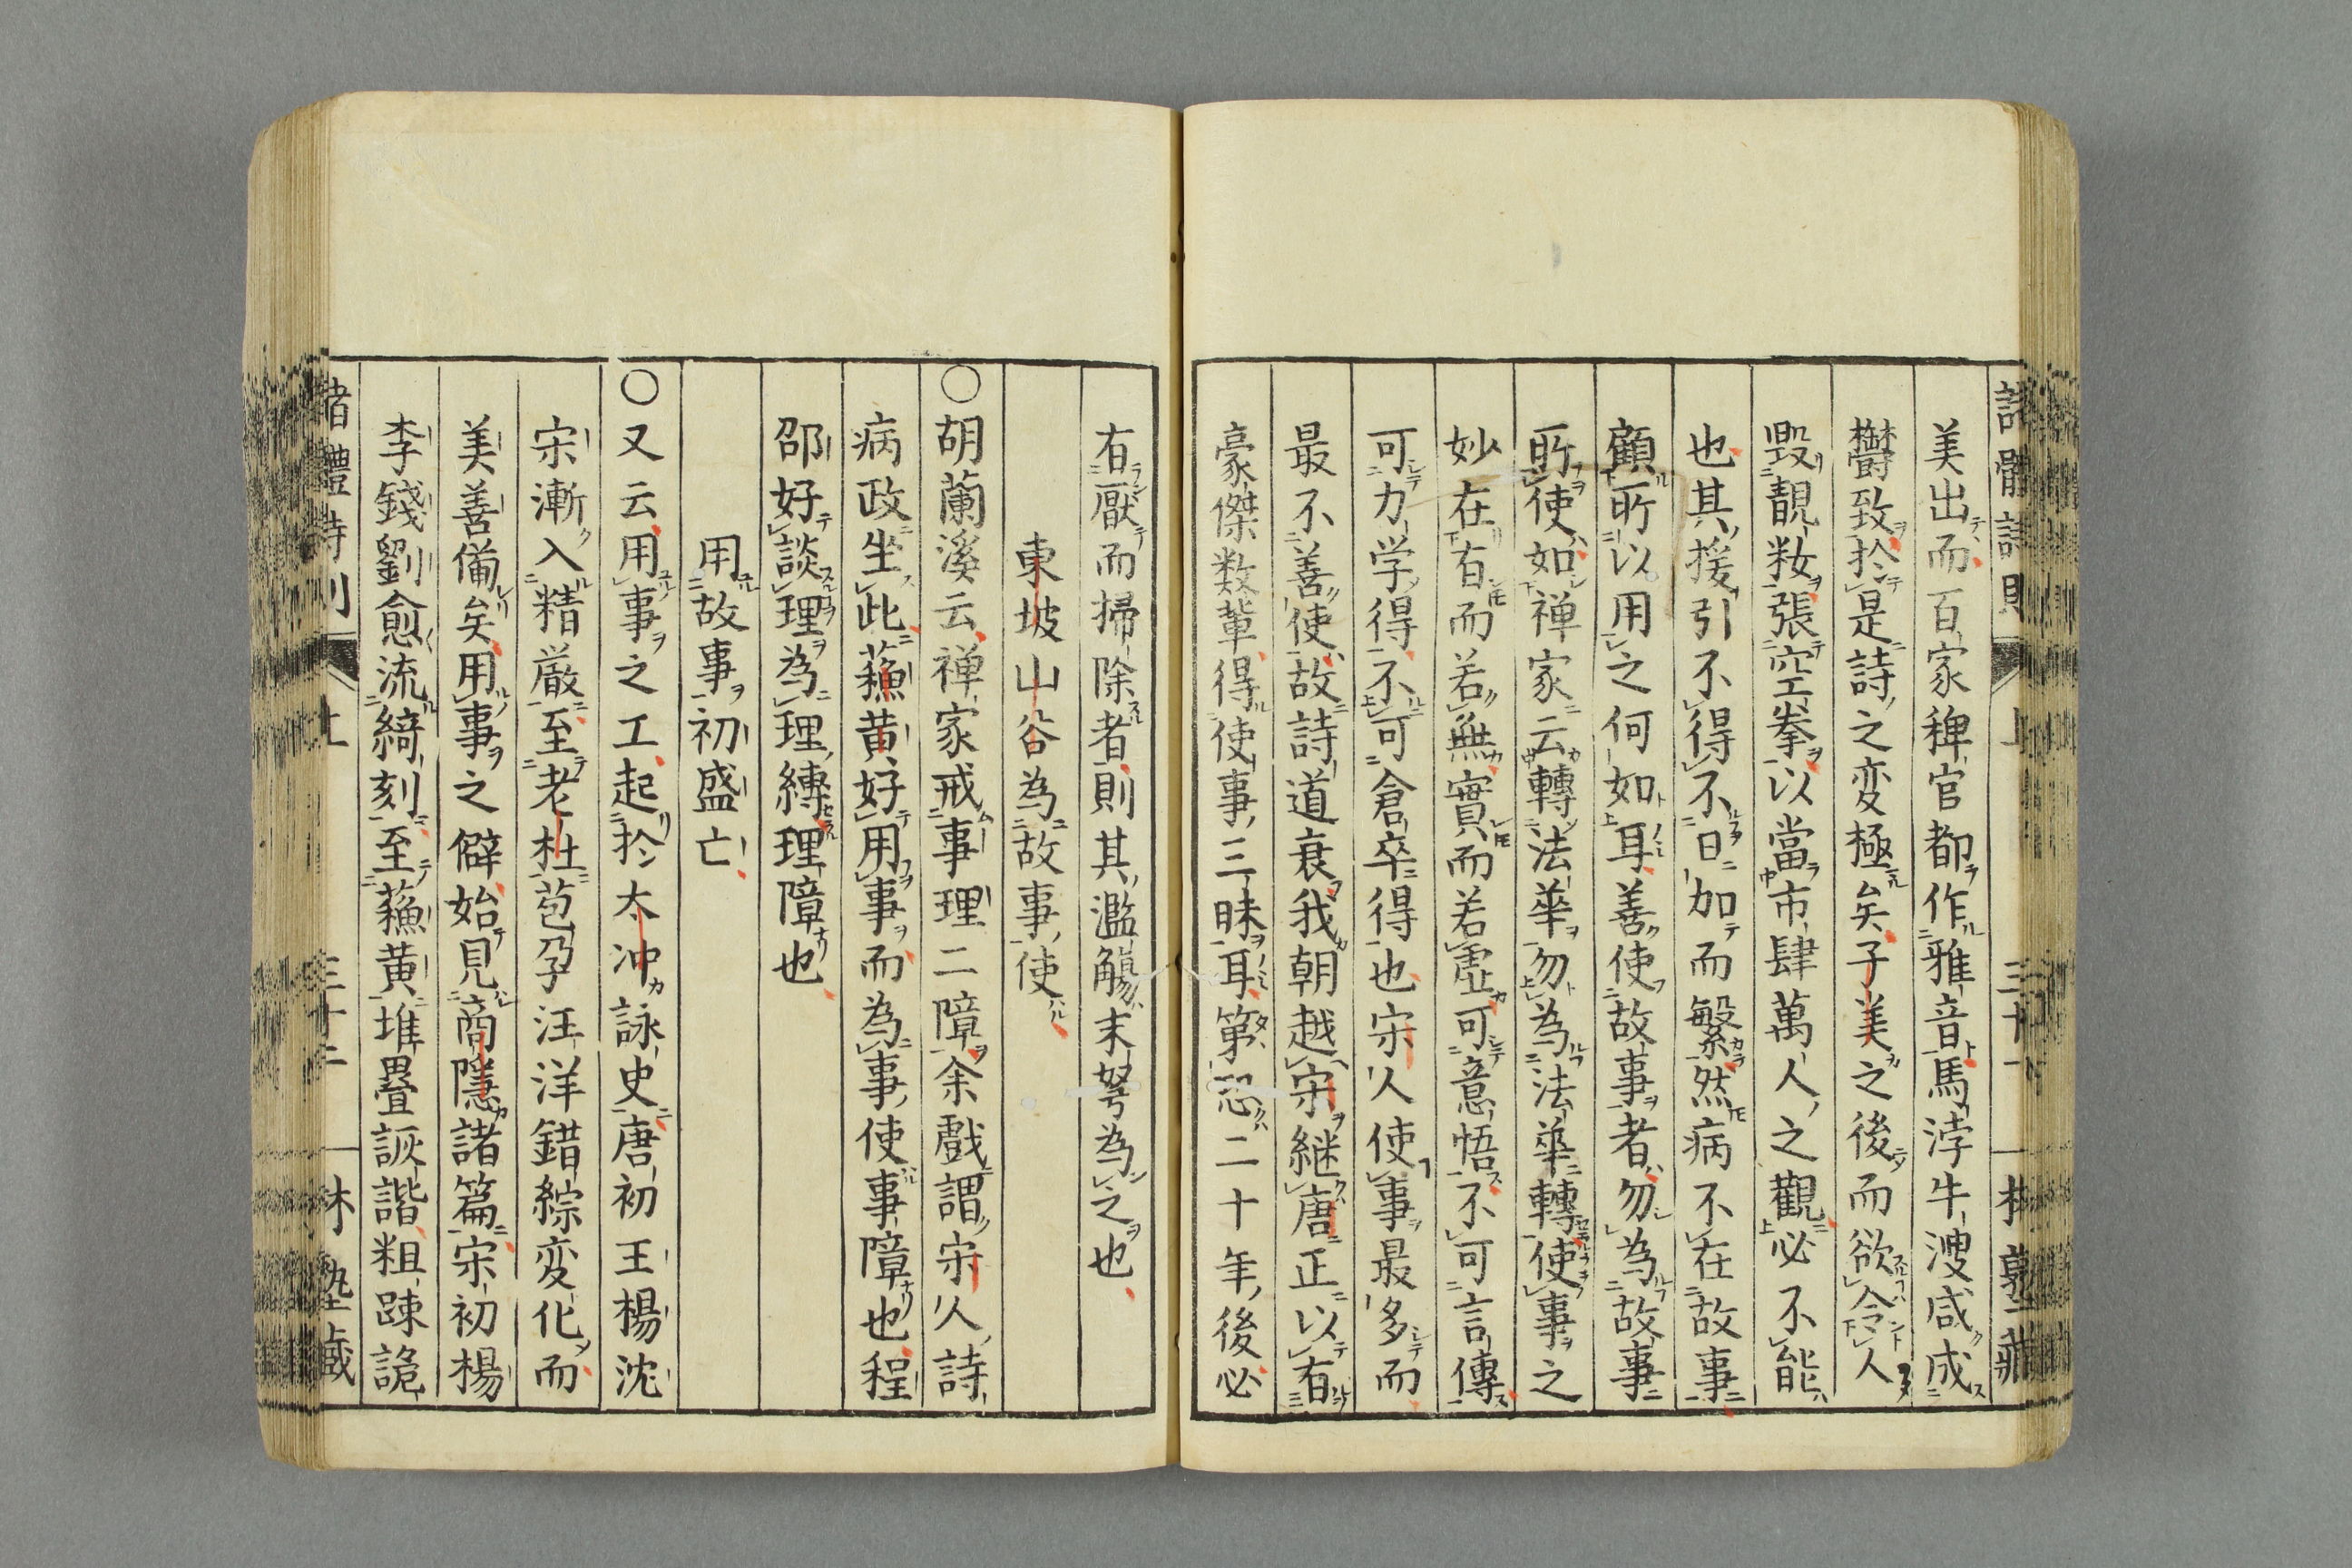 美出而百家稗官都作雅音馬浡牛溲咸成
欝致於是詩之変極矣子美之後而欲令人
毀靚粧張空拳以當市肆萬人之觀必不能
也其援引不得不日加而繁然病不在故事
顧所以用之何如耳善使故事者勿為故事
所使如禅家云轉法華勿為法華轉使事之
妙在有而若無實而若虚可意悟不可言傳
可力学得不可倉卒得也宋人使事最多而
最不善使故詩道衰我朝越宋継唐正以有
豪傑数輩得使事三昧耳第恐二十年後必
有厭而掃除者則其濫觴末弩為之也
東坡山谷為故事使
○胡蘭溪云禅家戒事理二障余戲謂宋人詩
病政坐此蘓黄好用事而為事使事障也程
邵好談理為理縛理障也
用故事初盛亡
○又云用事之工起於太冲詠史唐初王楊沈
宋漸入精厳至老杜苞孕汪洋錯綜変化而
美善備矣用事之僻始見商隠諸篇宋初楊
李錢劉愈流綺刻至蘓黄堆疊詼諧粗踈詭
上